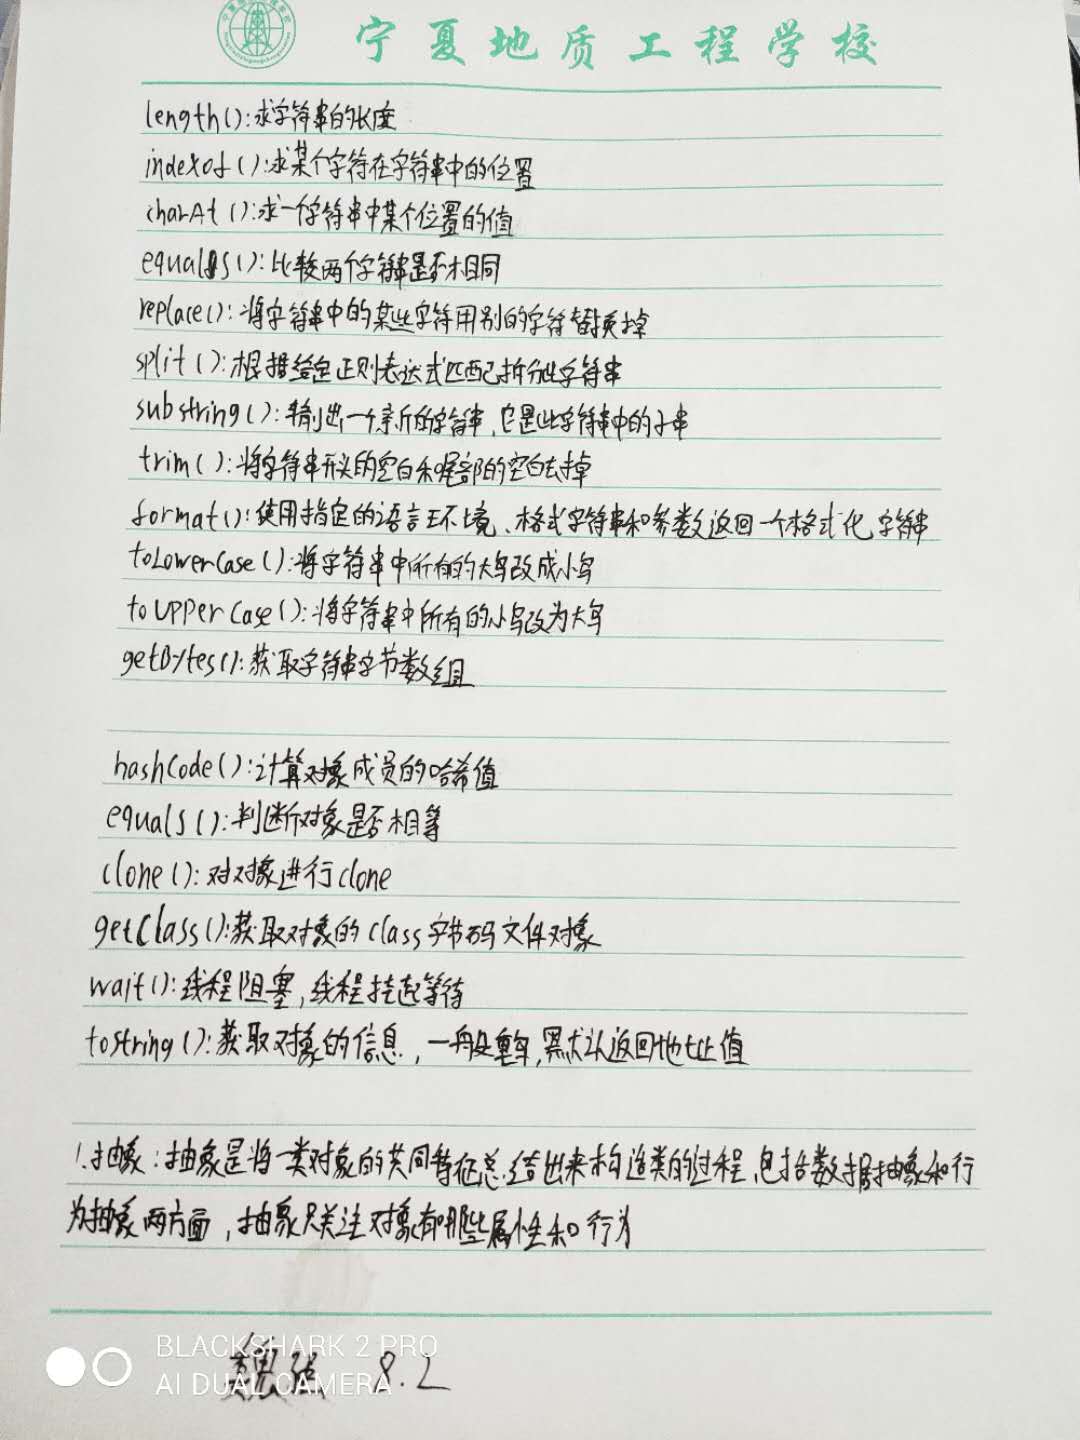 宁夏地质工程学校
length():求字符串的长度
indexof():求某个字符在字符串中的位置
charAt():求一个字符串中某个位置的值
equals():比较两个字符串是否相同
replace():将字符串中的某些字符用别的字符替换掉
split():根据给定正则表达式匹配拆分此字符串
substring():输出一个新的字符串,它是此字符串中的子串
trim():将字符串开头的空白和尾部的空白去掉
format():使用指定的语言环境、格式字符串和参数返回一个格式化字符串
toLowerCase():将字符串中所有的大写改成小写
toUpperCase():将字符串中所有的小写改为大写
getBytes():获取字符串字节数组
hashCode():计算对象成员的哈希值
equals():判断对象是否相等
clone():对对象进行clone
getClass():获取对象的class字节码文件对象
wait():线程阻塞,线程挂起等待
toString():获取对象的信息,一般重写,默认返回地址值
1.抽象:抽象是将一类对象的共同特征总结出来构造类的过程,包括数据抽象和行
为抽象两方面,抽象只关注对象有哪些属性和行为
BLACKSHARK 2 PRO
AI DUAL CAMERA
8.2